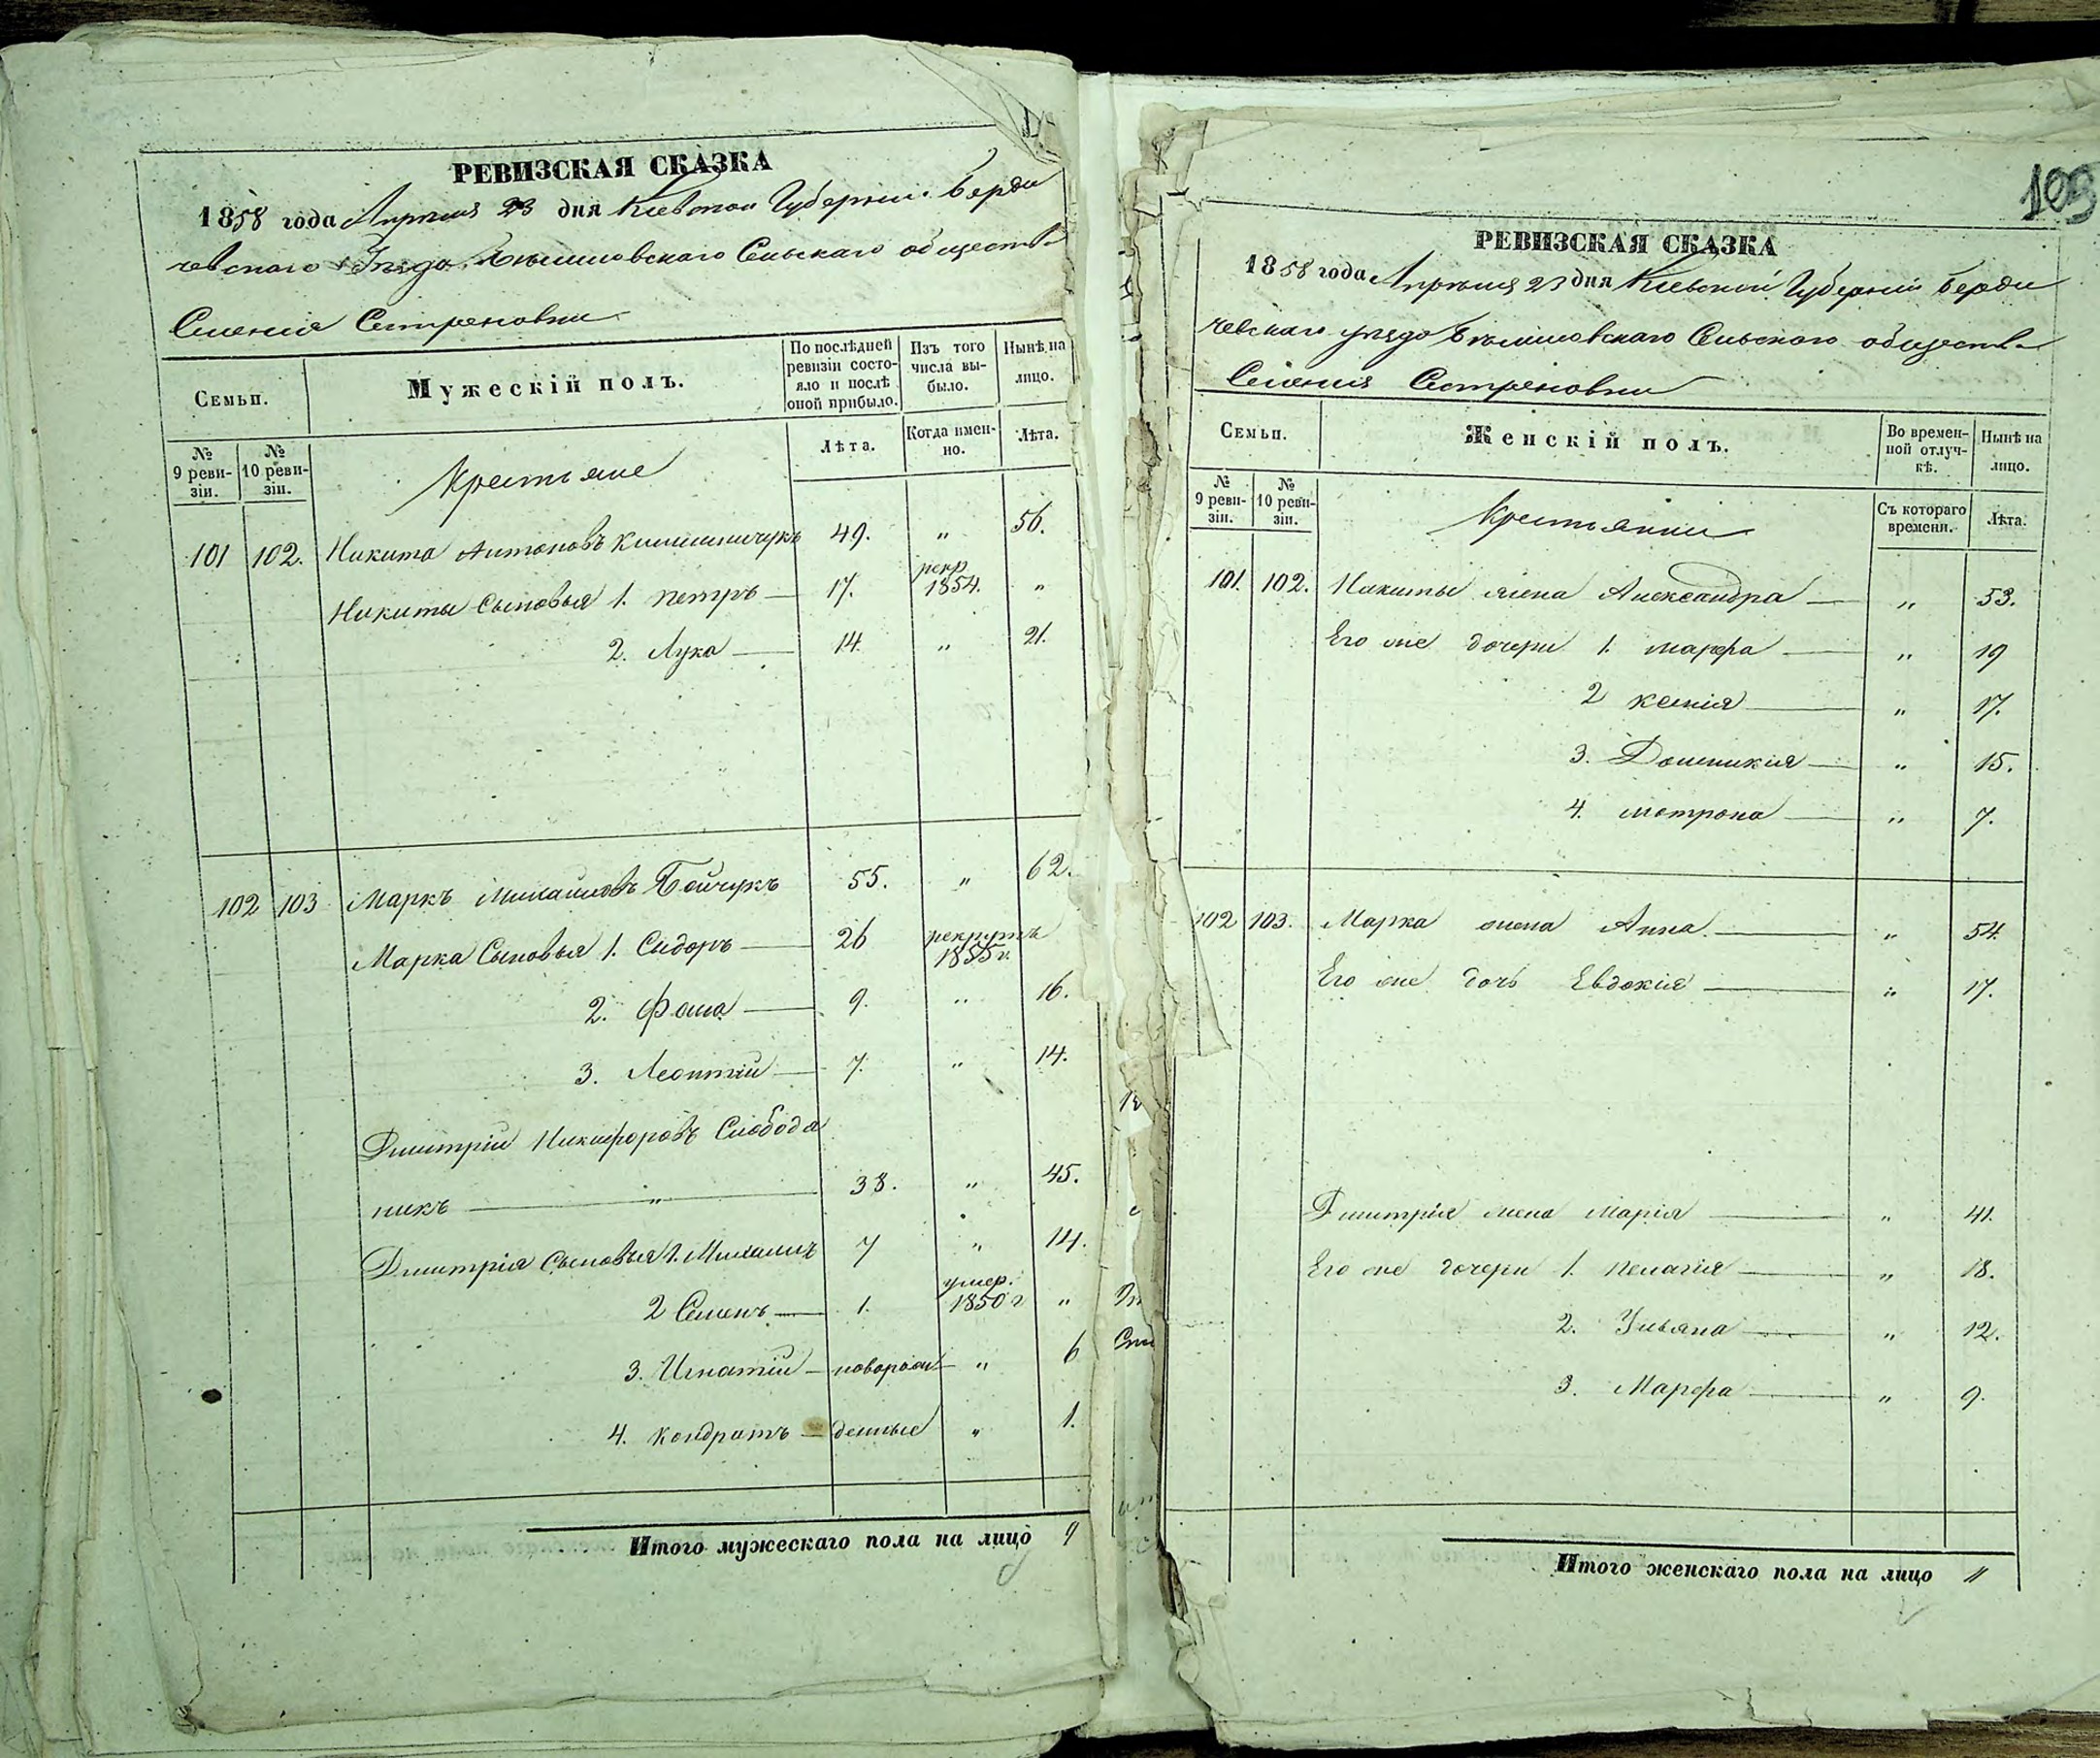 РЕВИЗСКАЯ СКАЗКА
1858 года Апрѣля 23 дня Кіевской Губерніи Берди
чевскаго Уѣзда Сельскаго обществ
Селенія Сестреновки
Семьи.
Мужескій полъ.
По послѣдней ревизіи состояло и послѣ оной прибыло.
Изъ того числа выбыло.
Нынѣ на лицо.
№ 9 ревизіи.
№ 10 ревизіи.
Крестьяне
Лѣта.
Когда именно.
Лѣта.
101 102. Никита Антоновъ 49. " 56.
Никиты Сыновья 1. Петръ — 17. рекр. 1854. "
2. Лука — 14. " 21.
102 103 Маркъ Михайловъ Бойчукъ 55. " 62.
Марка Сыновья 1. Сидоръ — 26 рекрутъ 1855 г.
2. Фома — 9. " 16.
3. Леонтій — 7. " 14.
Дмитрій Никифоровъ Слобода
никъ — " — 38. " 45.
Дмитрія Сыновья 1. Михаилъ 7 " 14.
2 Семенъ — 1. умер. 1850 г "
3. Игнатій — новорож— " 6
4. Кондратъ — денные " 1.
Итого мужескаго пола на лицо 9
103
РЕВИЗСКАЯ СКАЗКА
1858 года Апрѣля 23 дня Кіевской Губерніи Берди
чевскаго уѣзда Сельскаго обществ
Селенія Сестреновки
Семьи.
Женскій полъ.
Во временной отлучкѣ.
Нынѣ на лицо.
№ 9 ревизіи.
№ 10 ревизіи.
Крестьянки
Съ котораго времени.
Лѣта.
101. 102. Никиты жена Александра — " 53.
Его же дочери 1. Марфа — " 19
2 Ксенія — " 17.
3. Домникия — " 15.
4. Мотрона — " 7.
102 103. Марка жена Анна — " 54.
Его же дочь Евдокія — " 17.
Дмитрія жена Марія — " 41.
Его же дочери 1. Пелагія — " 18.
2. Ульяна — " 12.
3. Марфа — " 9.
Итого женскаго пола на лицо 11